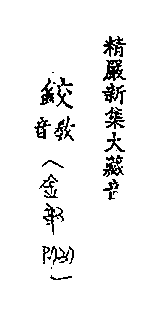 精嚴新集大藏音
鉸教音（金部